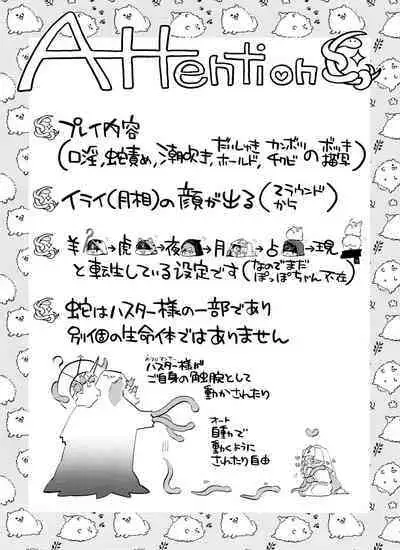 Attention
プレイ内容
(口淫,蛇責め,潮吹き,だいしゅきホールド,カンボツチクビのボッキ描写)
イライ(月相)の顔が出る(2ラウンドから)
羊→虎→夜→月→占→現
と転生している設定です(なのでまだぽっぽちゃん不在)
蛇はハスター様の一部であり
別個の生命体ではありません
ハスター様が
ご自身の触腕として
動かされたり
オート
自動で
動くように
されたり自由